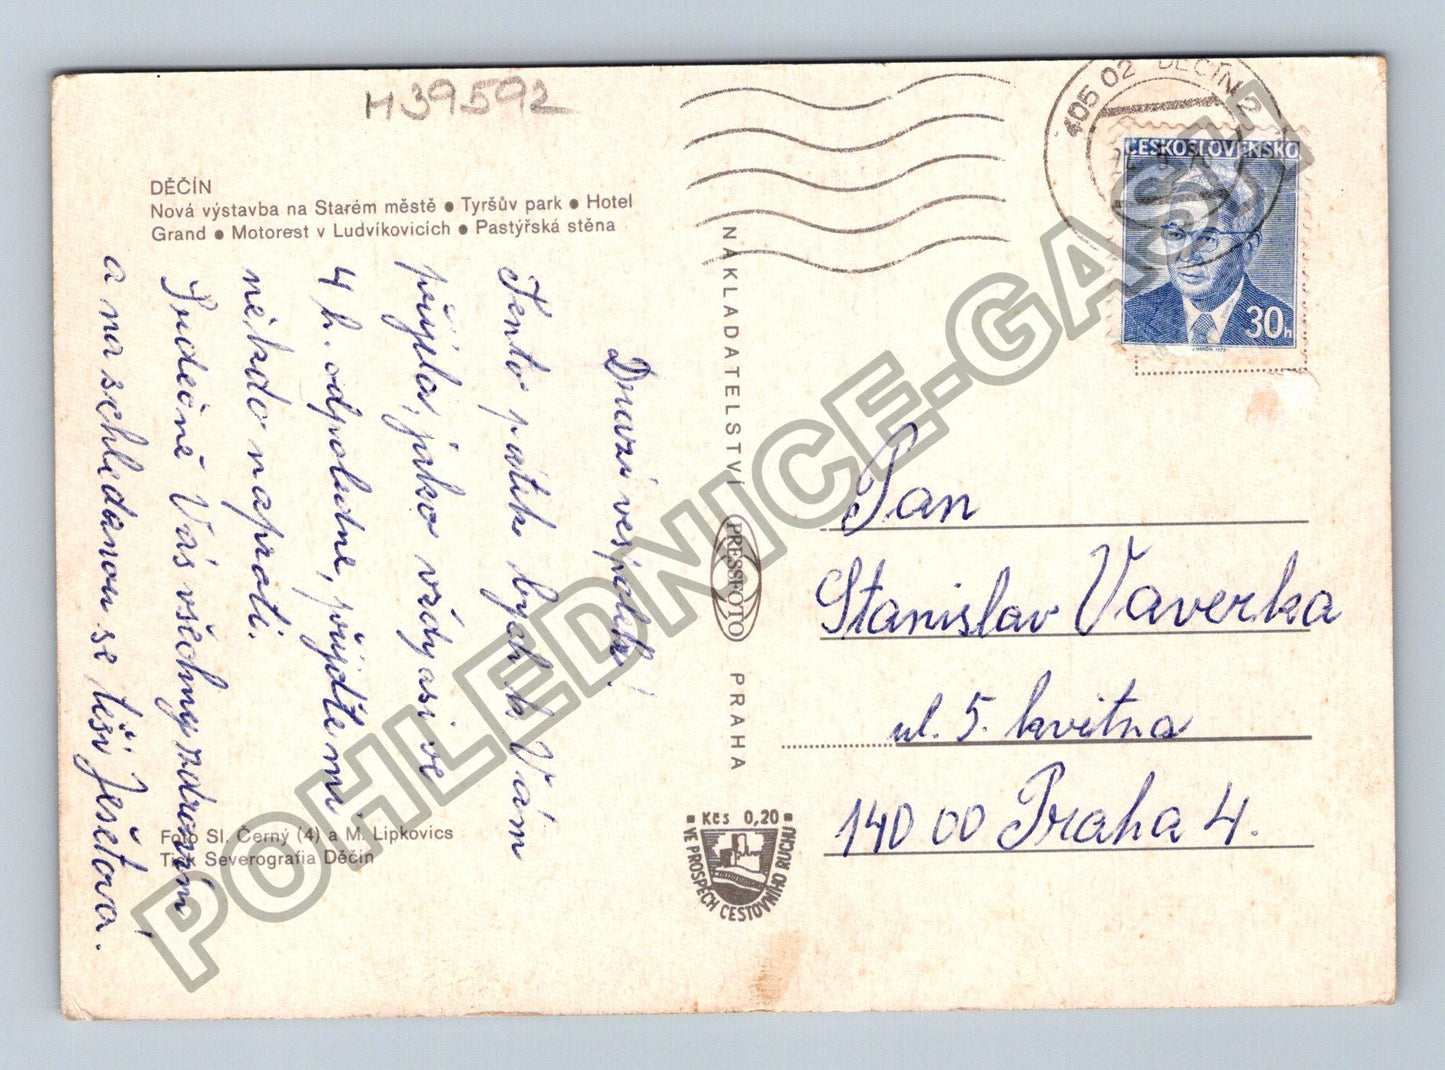 M39592
DĚČÍN
Nová výstavba na Starém městě ● Tyršův park ● Hotel
Grand ● Motorest v Ludvíkovicích ● Pastýřská stěna
Drazí vespolek!
Tento pátek bych k Vám
přijela, jako vždy asi ve
4 h. odpoledne, přijďte mi
někdo naproti.
Srdečně Vás všechny zdravím
a na schledanou se těší Ješetova.
Foto Sl. Černý (4) a M. Lipkovics
Tisk Severografia Děčín
NAKLADATELSTVÍ PRESSFOTO PRAHA
Kčs 0,20
VE PROSPĚCH CESTOVNÍHO RUCHU
405 02 DĚČÍN 2
ČESKOSLOVENSKO
30h
Pan
Stanislav Vaverka
ul. 5. května
140 00 Praha 4.
POHLEDNICE-GASU